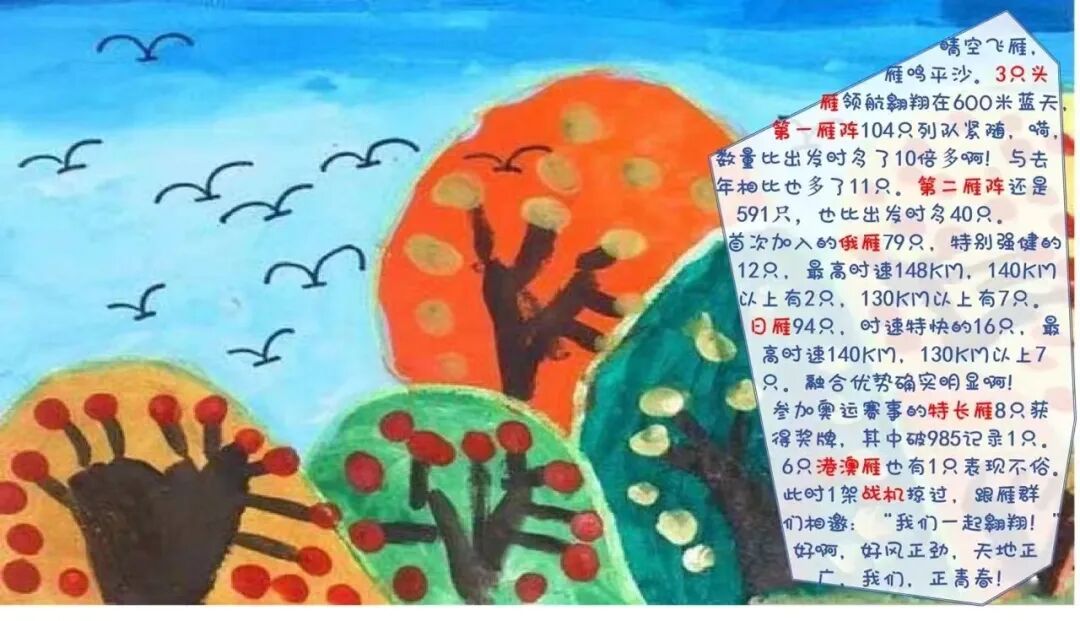 晴空飞雁，
雁鸣平沙。3只头
雁领航翱翔在600米蓝天，
第一雁阵104只列队紧随，嗬，
数量比出发时多了10倍多啊！与去
年相比也多了11只。第二雁阵还是
591只，也比出发时多40只。
首次加入的俄雁79只，特别强健的
12只，最高时速148KM，140KM
以上有2只，130KM以上有7只。
日雁94只，时速特快的16只，最
高时速140KM，130KM以上7
只。融合优势确实明显啊！
参加奥运赛事的特长雁8只获
得奖牌，其中破985记录1只。
6只港澳雁也有1只表现不俗。
此时1架战机掠过，跟雁群
们相邀：“我们一起翱翔！”
好啊，好风正劲，天地正
广，我们，正青春！